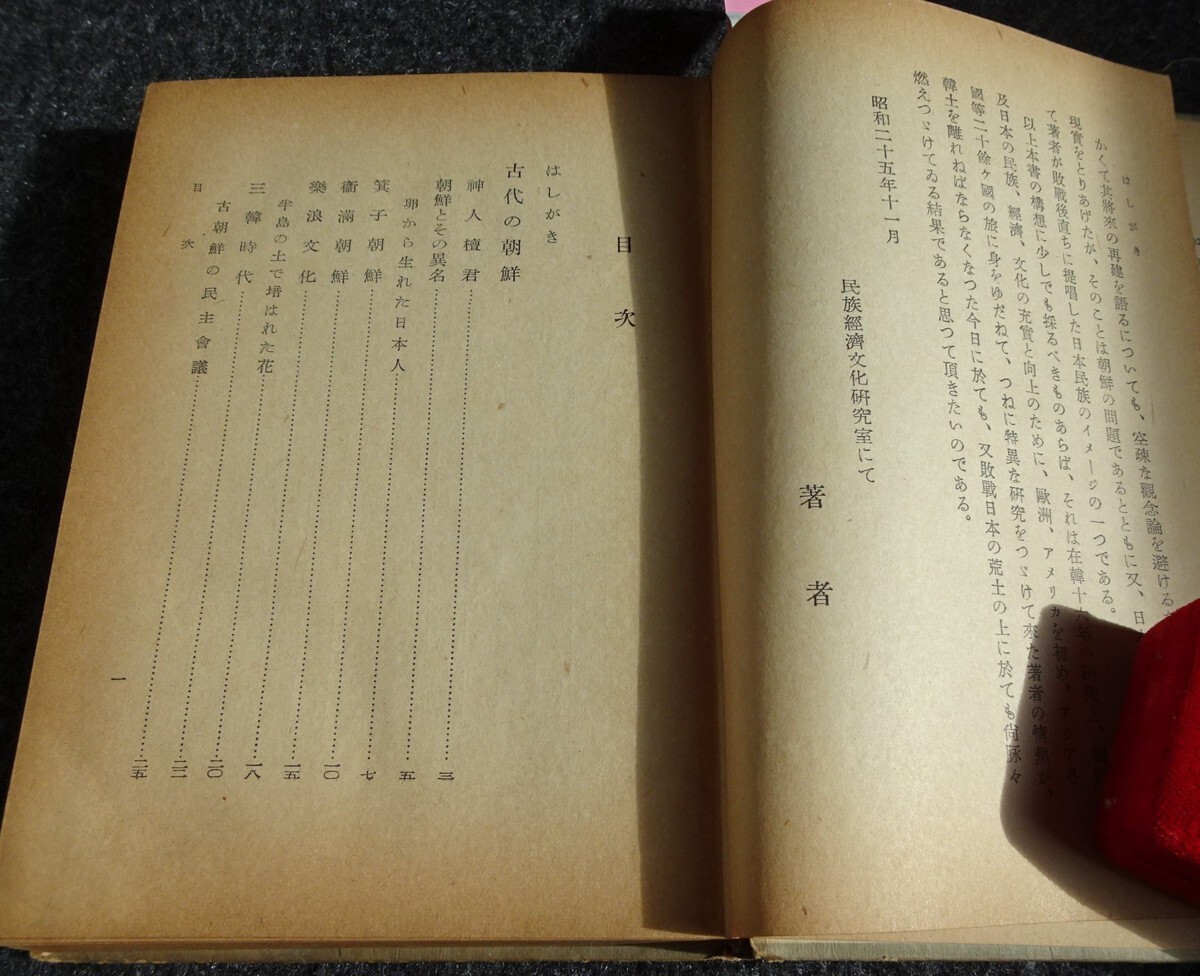 はしがき
かくて其將來の再建を語るについても、空疎な觀念論を避ける
現實をとりあげたが、そのことは朝鮮の問題であるとともに又、日
て著者が敗戰後直ちに提唱した日本民族のイメージの一つである。
以上本書の構想に少しでも採るべきものあらば、それは在韓十六年の研究
及日本の民族、經濟、文化の充實と向上のために、歐洲、アメリカを初め、アジア
國等二十餘ヶ國の旅に身をゆだねて、つねに特異な研究をつゞけて來た著者の情熱
韓土を離れねばならなくなつた今日に於ても、又敗戰日本の荒土の上に於ても尙脉々
燃えつゞけてゐる結果であると思つて頂きたいのである。
昭和二十五年十一月
民族經濟文化硏究室にて
著者
目次
はしがき
古代の朝鮮
神人檀君……三
朝鮮とその異名……五
卵から生れた日本人……七
箕子朝鮮……一〇
衞滿朝鮮……一五
樂浪文化……一八
半島の土で培はれた花……二〇
三韓時代……二二
古朝鮮の民主會議……二五
目次
一